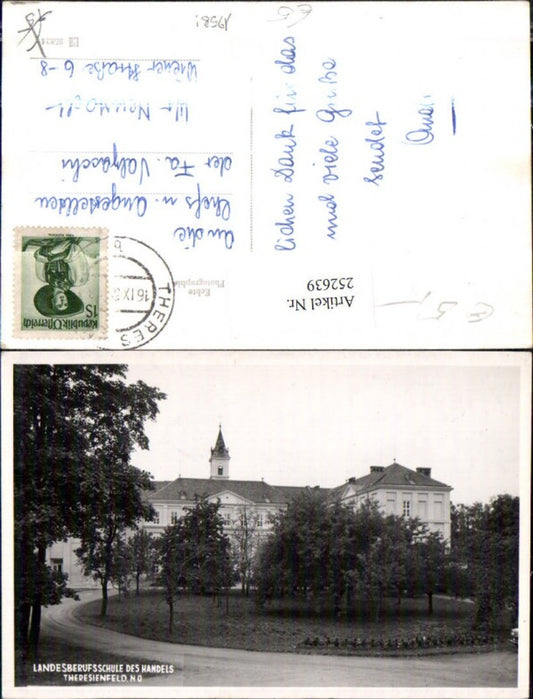 1958!
An die
Chefs u. Angestellten
der Fa.
Wr Neustadt
Wiener Straße 6-8
lichen Dank für das
und viele Grüße
sendet
Echte
Photographie
Artikel Nr.
252639
€ 5,-
Republik Österreich
1S
THERES
16.IX.5
LANDESBERUFSSCHULE DES HANDELS
THERESIENFELD, N.Ö